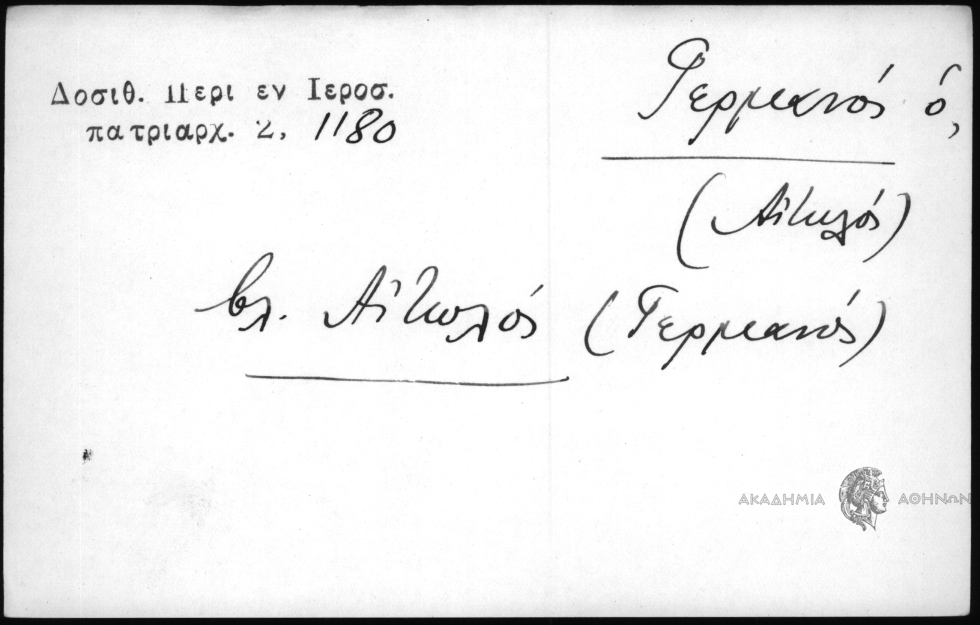 Δοσιθ. Περι εν Ιεροσ.
πατριαρχ. 2, 1180
Γερμανός ὁ,
(Αἰτωλός)
βλ. Αἰτωλός (Γερμανός)
ΑΚΑΔΗΜΙΑ ΑΘΗΝΩΝ